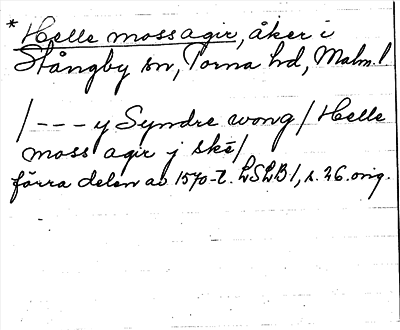 * Helle moss agir, åker i
Stångby sn, Torna hd, Malm. l
/--- y Syndre wong / Helle
moss agir j skē/
förra delen av 1570-t. LSLB 1, s. 26. orig.